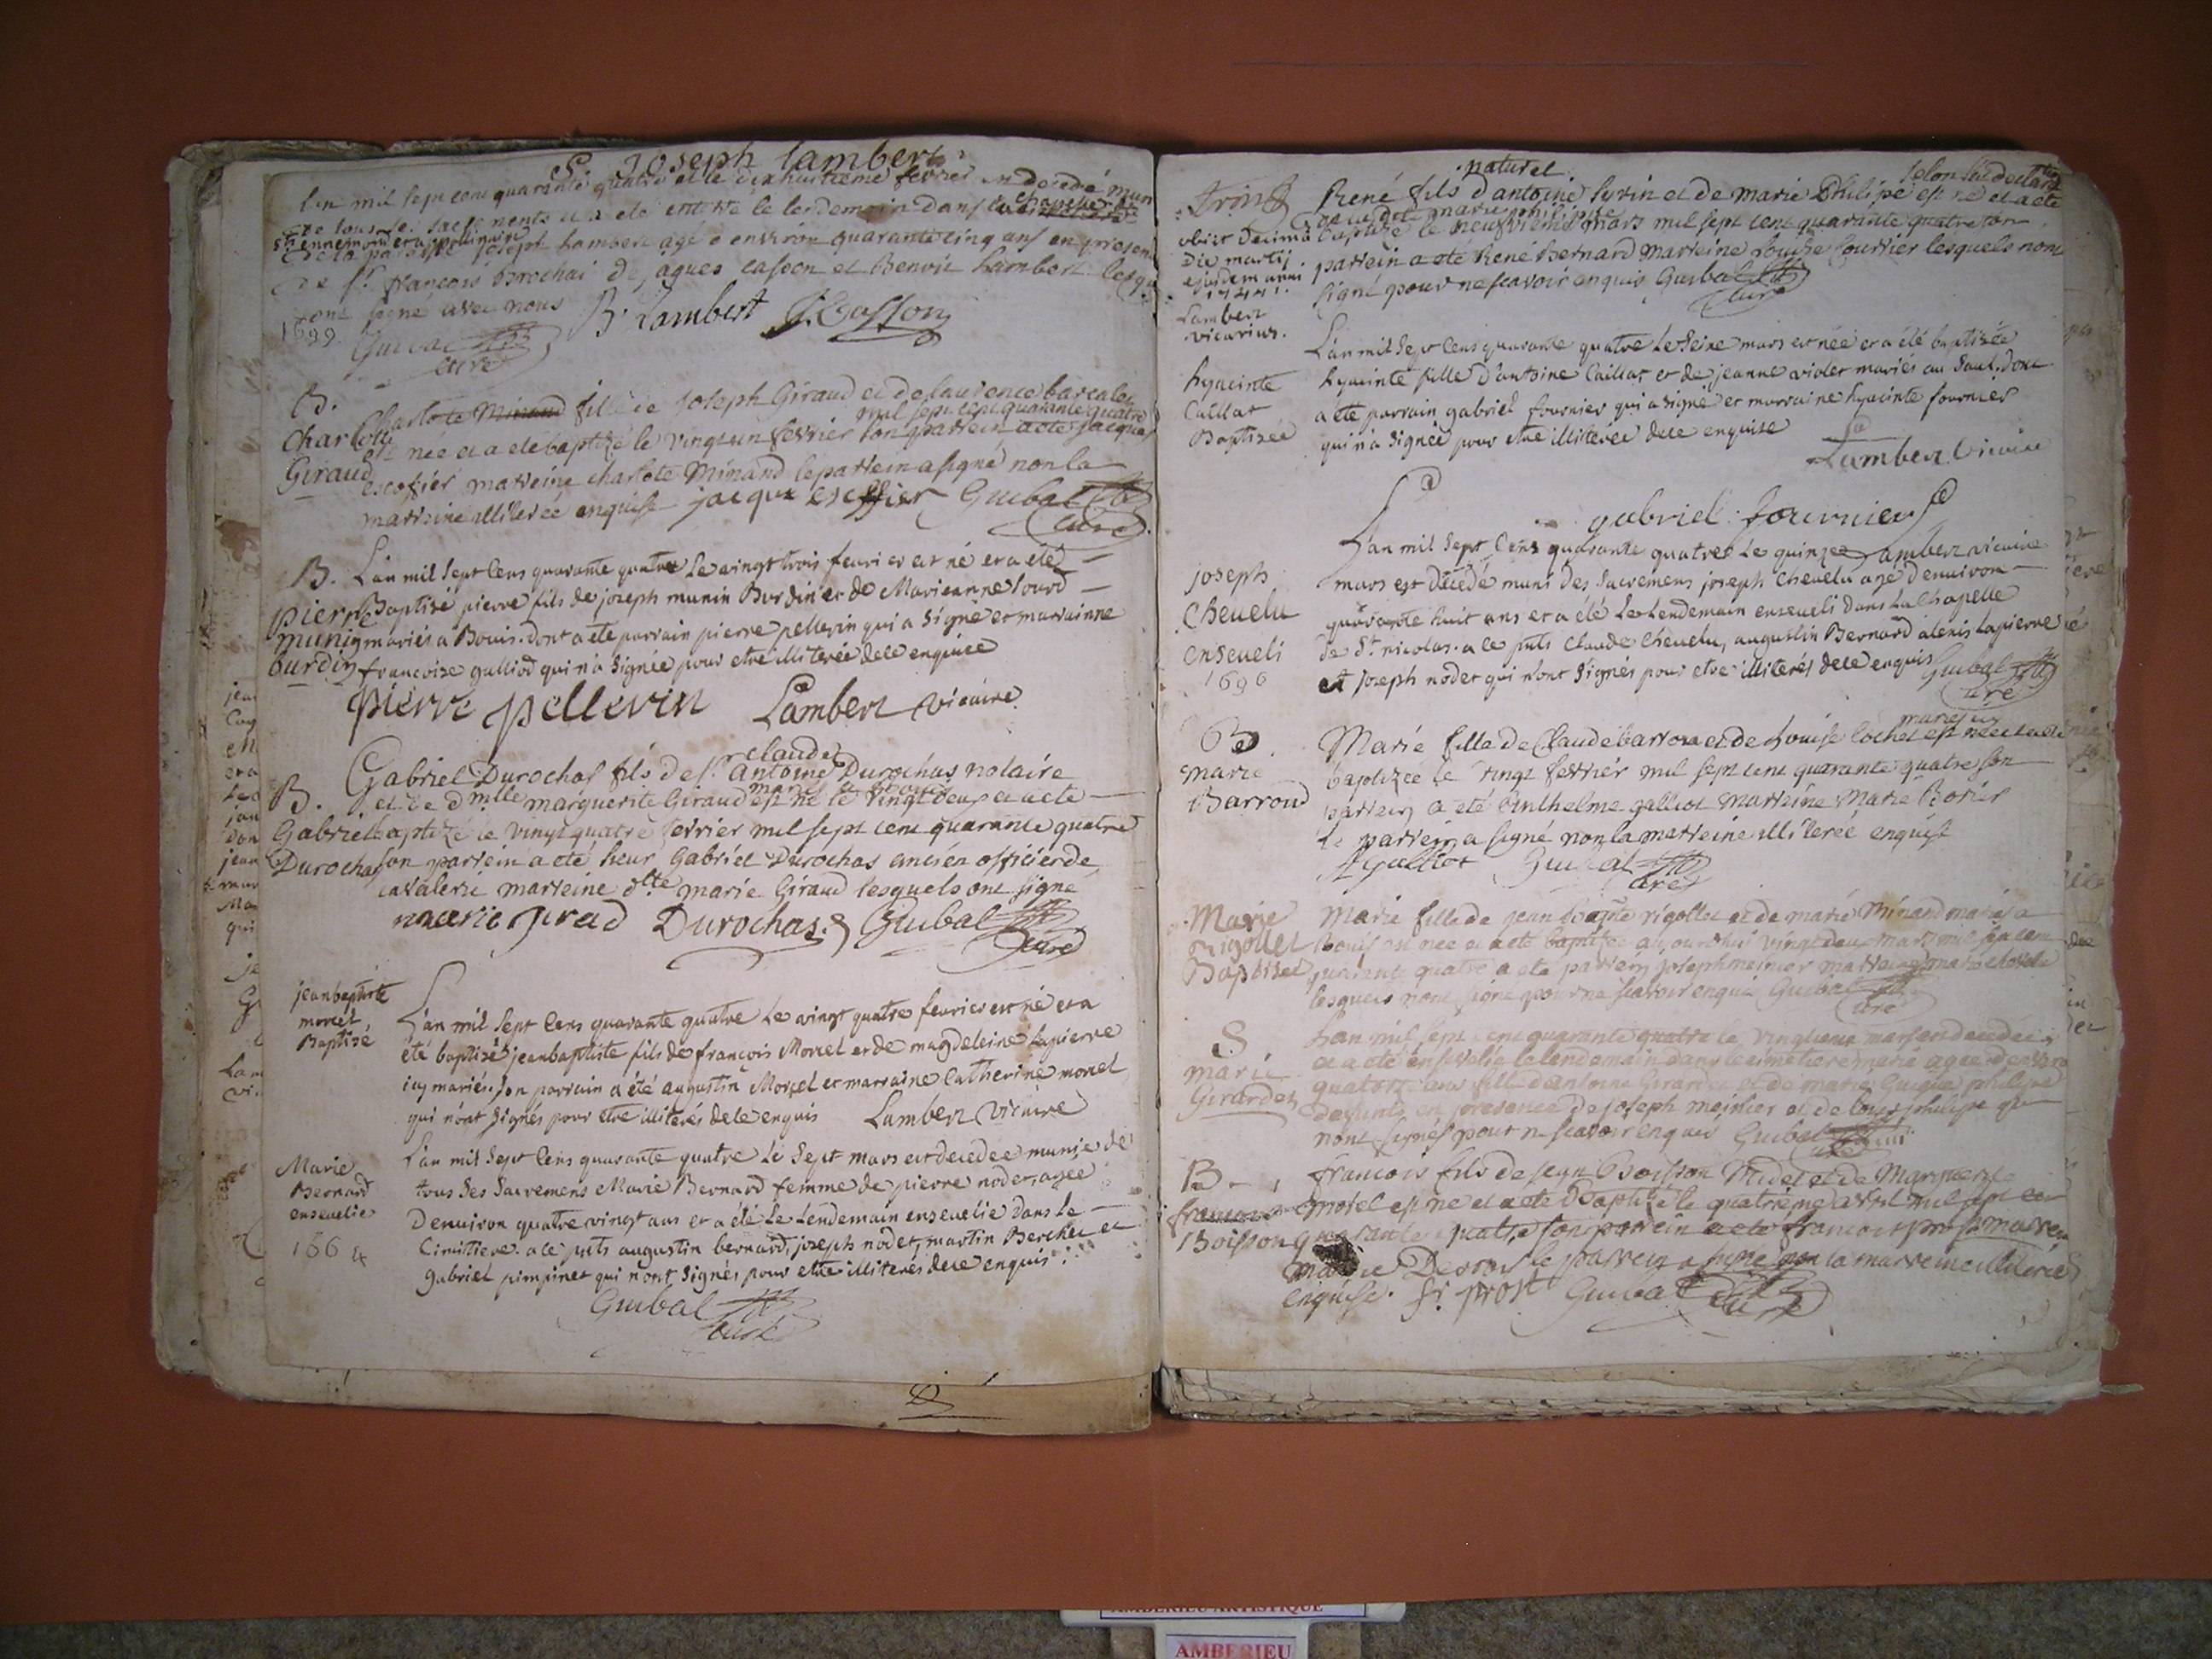 S. Joseph Lambert
L'an mil sept cent quarante quatre et le dixhuitieme fevrier est decedé muni
de tous les sacrements et a eté enterré le lendemain dans la chapelle
de la paroisse Joseph Lambert agé d'environ quarante cinq ans en presence
de sr. françois Brochai de jaques casson et Benoit Lambert lesquels
ont signé avec nous B. Lambert J. Casson
1699 Guibal
curé
B.
Charlotte
Giraud
Charlote Minand fille de Joseph Giraud et de laurence
mil sept cent quarante quatre
est née et a eté baptizé le vingt un fevrier son parrein a eté jacque
escofier marreine charlote Minand le parrein a signé non la
marreine illiterée enquise jacque escoffier Guibal
curé
B.
pierre
munin
burdin
L'an mil sept cens quarante quatre le vingt trois feurier est né et a été
Baptisé pierre fils de joseph munin Burdin et de Marieanne Sourd
mariés a Bouis. dont a ete parrain pierre pellerin qui a signé et marrainne
francoise galliod qui n'a signée pour etre illiterée dele enquise
pierre pellerin Lambert vicaire
B.
Gabriel
Durochas
claude
Gabriel Durochas fils de sr. antoine Durochas notaire
et de dmlle marguerite Giraud est né le vingt deux et a eté
baptizé le vingt quatre fevrier mil sept cent quarante quatre
son parrein a eté sieur Gabriel Durochas ancien officier de
cavalerie marreine dlle marie Giraud lesquels ont signé
marie girad Durochas Guibal
curé
jeanbaptiste
morcel
Baptisé
L'an mil sept cens quarante quatre le vingt quatre feurier est né et a
été baptisé jeanbaptiste fils de francois Morcel et de magdeleine Lapierre
icy mariés. son parrain a été augustin Morcel et marraine Catherine morcel
qui n'ont signés pour etre illiterés dele enquis Lambert vicaire
Marie
Bernard
enseuelie
1664
L'an mil sept cens quarante quatre le sept mars est decedée munie de
tous ses sacremens Marie Bernard femme de pierre noder, agée
d'enuiron quatre vingt ans et a été le lendemain enseuelie dans le
Cimitiere. a ce puts augustin bernard, joseph noder, martin Bercher et
gabriel pimpinet qui n'ont signés pour etre illiterés dele enquis
Guibal
curé
naturel selon sa declaration
obiit decima
die martij
ejusdem anni
1744.
Lambert
vicarius.
René fils d'antoine Sirin et de marie Philipe est né et a eté
baptizé le neufvieme mars mil sept cent quarante quatre son
parrein a eté René Bernard marreine Louise fournier lesquels n'ont
signé pour ne scavoir enquis Guibal
curé
hyacinte
Caillat
Baptisée
L'an mil sept cens quarante quatre le seize mars est née et a été baptisée
hyacinte fille d'antoine Caillat et de jeanne violet mariés au Sault. dont
a eté parrain gabriel fournier qui a signé et marraine hyacinte fournier
qui n'a signée pour etre illiterée dele enquise
Lambert vicaire
gabriel fournier
joseph
Cheuelu
enseueli
1696
L'an mil sept cens quarante quatre le quinze Lambert vicaire
mars est décedé muni des sacremens joseph Cheuelu agé d'enuiron
quarante huit ans et a été le lendemain enseueli dans la Chapelle
de St. nicolas. a ce puts claude Cheuelu, augustin Bernard alexis Lapierre
et joseph noder qui n'ont signés pour etre illiterés dele enquis Guibal
curé
B.
marie
Barrond
Marie fille de Claude barron et de Louise Cochet mariés est née et a eté
baptizée le vingt fevrier mil sept cent quarante quatre son
parrein a eté Anthelme galliot marreine Marie Borier
le parrein a signé non la marreine illiterée enquise
A galliot Guibal
curé
Marie
rigollet
Baptisée
Marie fille de jean baptiste rigollet et de marie Minand mariés a
Bouis est née et a eté baptizée aujourdhui vingt deux mars mil sept cent
quarante quatre a eté parrein joseph meinier marreine marie
lesquels n'ont signé pour ne scavoir enquis Guibal
curé
S
marie
Girardet
L'an mil sept cent quarante quatre le vingt mars est decedée
et a eté ensevelie le lendemain dans le cimetiere marie agée d'environ
quatorze ans fille d'antoine Girardet et de marie philipe
defunts en presence de joseph meinier et de philipe qui
n'ont signés pour ne scavoir enquis Guibal
curé
B.
francois
Boisson
francois fils de jean Boisson Videl et de Marguerite
morel est né et a eté Baptizé le quatrieme avril mil sept cent
quarante quatre son parrein a eté francois prost marreine
marie le parrein a signé non la marreine illiterée
enquise. fr. prost Guibal
curé
AMBERIEU ARTISTIQUE
AMBERIEU